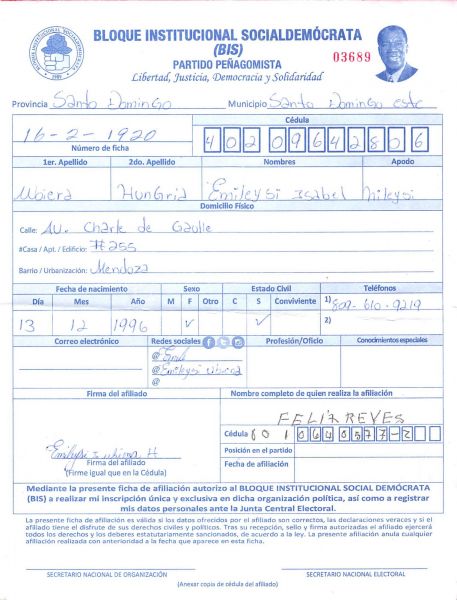 BLOQUE INSTITUCIONAL SOCIALDEMÓCRATA
(BIS)
03689
PARTIDO PEÑAGOMISTA
Libertad, Justicia, Democracia y Solidaridad
Provincia Santo Domingo Municipio Santo Domingo este
Cédula
16-2-1920 402 0964280 6
Número de ficha
1er. Apellido 2do. Apellido Nombres Apodo
Ubiera Hungria Emileysi Isabel Mileysi
Domicilio Físico
Calle: AV. Charle de Gaulle
#Casa / Apt. / Edificio: #255
Barrio / Urbanización: Mendoza
Fecha de nacimiento Sexo Estado Civil Teléfonos
Día Mes Año M F Otro C S Conviviente 1) 809-610-9219
13 12 1996 ✓ ✓ 2)
Correo electrónico Redes sociales Profesión/Oficio Conocimientos especiales
@
@Emileysi Ubiera
@
Firma del afiliado Nombre completo de quien realiza la afiliación
FELIX REYES
Cédula 001 0640577-2
Posición en el partido
Firma del afiliado Fecha de afiliación
(Firme igual que en la Cédula)
Mediante la presente ficha de afiliación autorizo al BLOQUE INSTITUCIONAL SOCIAL DEMÓCRATA
(BIS) a realizar mi inscripción única y exclusiva en dicha organización política, así como a registrar
mis datos personales ante la Junta Central Electoral.
La presente ficha de afiliación es válida si los datos ofrecidos por el afiliado son correctos, las declaraciones veraces y si el
afiliado tiene el disfrute de sus derechos civiles y políticos. Tras su recepción, sello y firma autorizadas el afiliado ejercerá
todos los derechos y los deberes estatutariamente sancionados, de acuerdo a la ley. La presente afiliación anula cualquier
afiliación realizada con anterioridad a la fecha que aparece en esta ficha.
SECRETARIO NACIONAL DE ORGANIZACIÓN SECRETARIO NACIONAL ELECTORAL
(Anexar copia de cédula del afiliado)